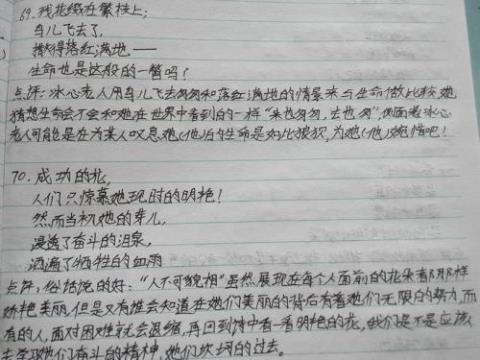 69.残花缀在繁枝上;
鸟儿飞去了,
撒得落红满地——
生命也是这般的一瞥吗?
点评:冰心老人用鸟儿飞去匆匆和落红满地的情景来与生命做比较她
猜想生命会不会和她在世界中看到的一样“来也匆匆,去也匆”,侧面看冰心
老人可能是在为某人叹息她(他)的生命是如此短暂,为她(他)婉惜吧!
70.成功的花,
人们只惊慕她现时的明艳!
然而当初她的芽儿,
浸透了奋斗的泪泉,
洒遍了牺牲的血雨
点评:俗话说的好:“人不可貌相”虽然展现在每个人面前的花朵看那那样
娇艳美丽,但是又有谁会知道在她们美丽的背后有着她们无限的努力,而
有的人,面对困难就会退缩,再回到诗中看一看明艳的花,我们是不是应该
去学习她们奋斗的精神,她们坎坷的过去。